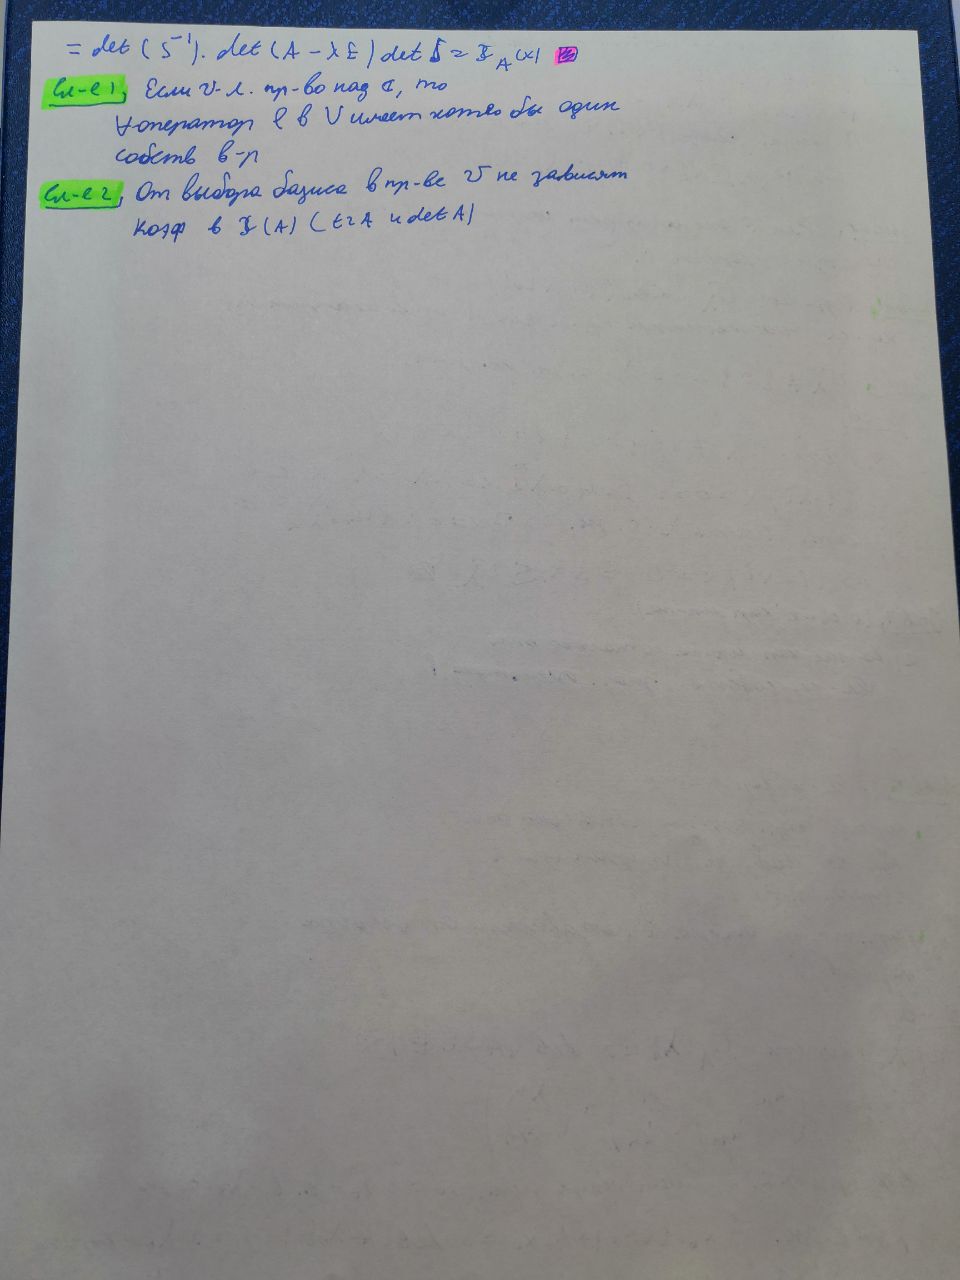 = det (S⁻¹). det (A - λE) det S = χ_A(λ)
Сл-е 1, Если V-л. пр-во над ℂ, то
∀оператор φ в V имеет хотя бы один
собств в-р
Сл-е 2, От выбора базиса в пр-ве V не зависят
Коэф в χ(A) (tr A и det A)